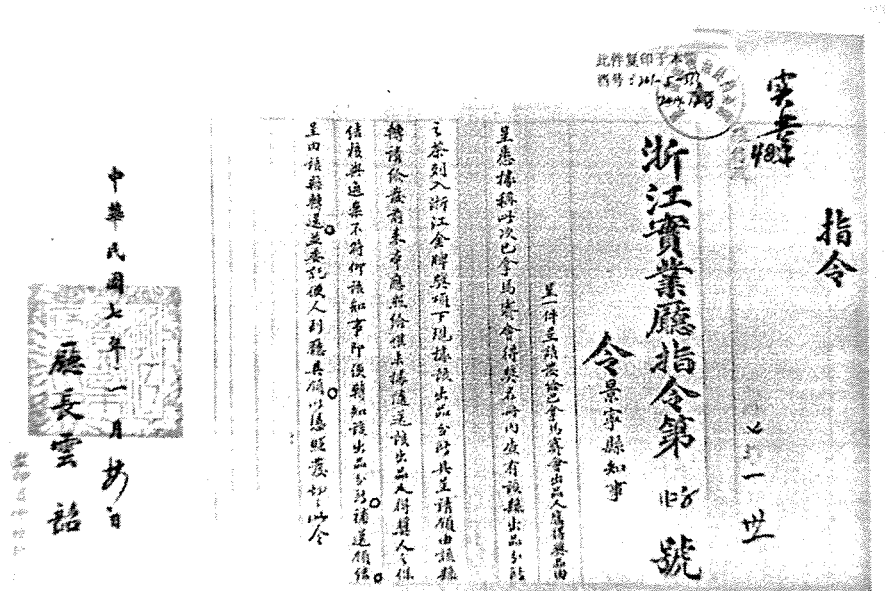 指令
浙江實業廳指令第 號
令景寧縣知事
呈一件呈請發給巴拿馬賽會出品人應得獎品由
呈悉據稱此次巴拿馬賽會得獎名冊內處有該縣出品分所
之茶列入浙江金牌獎項下現據該出品分所具呈請領由該縣
轉請給發前來事應照給惟未據隨送該出品人得獎人之保
結核與通案不符仰該知事即便轉知該出品分所補送領結
呈由該縣轉送並委託便人到廳具領以憑照發切切此令
中華民國七年一月 日
廳長雲韶
此件复印于本馆
档号: